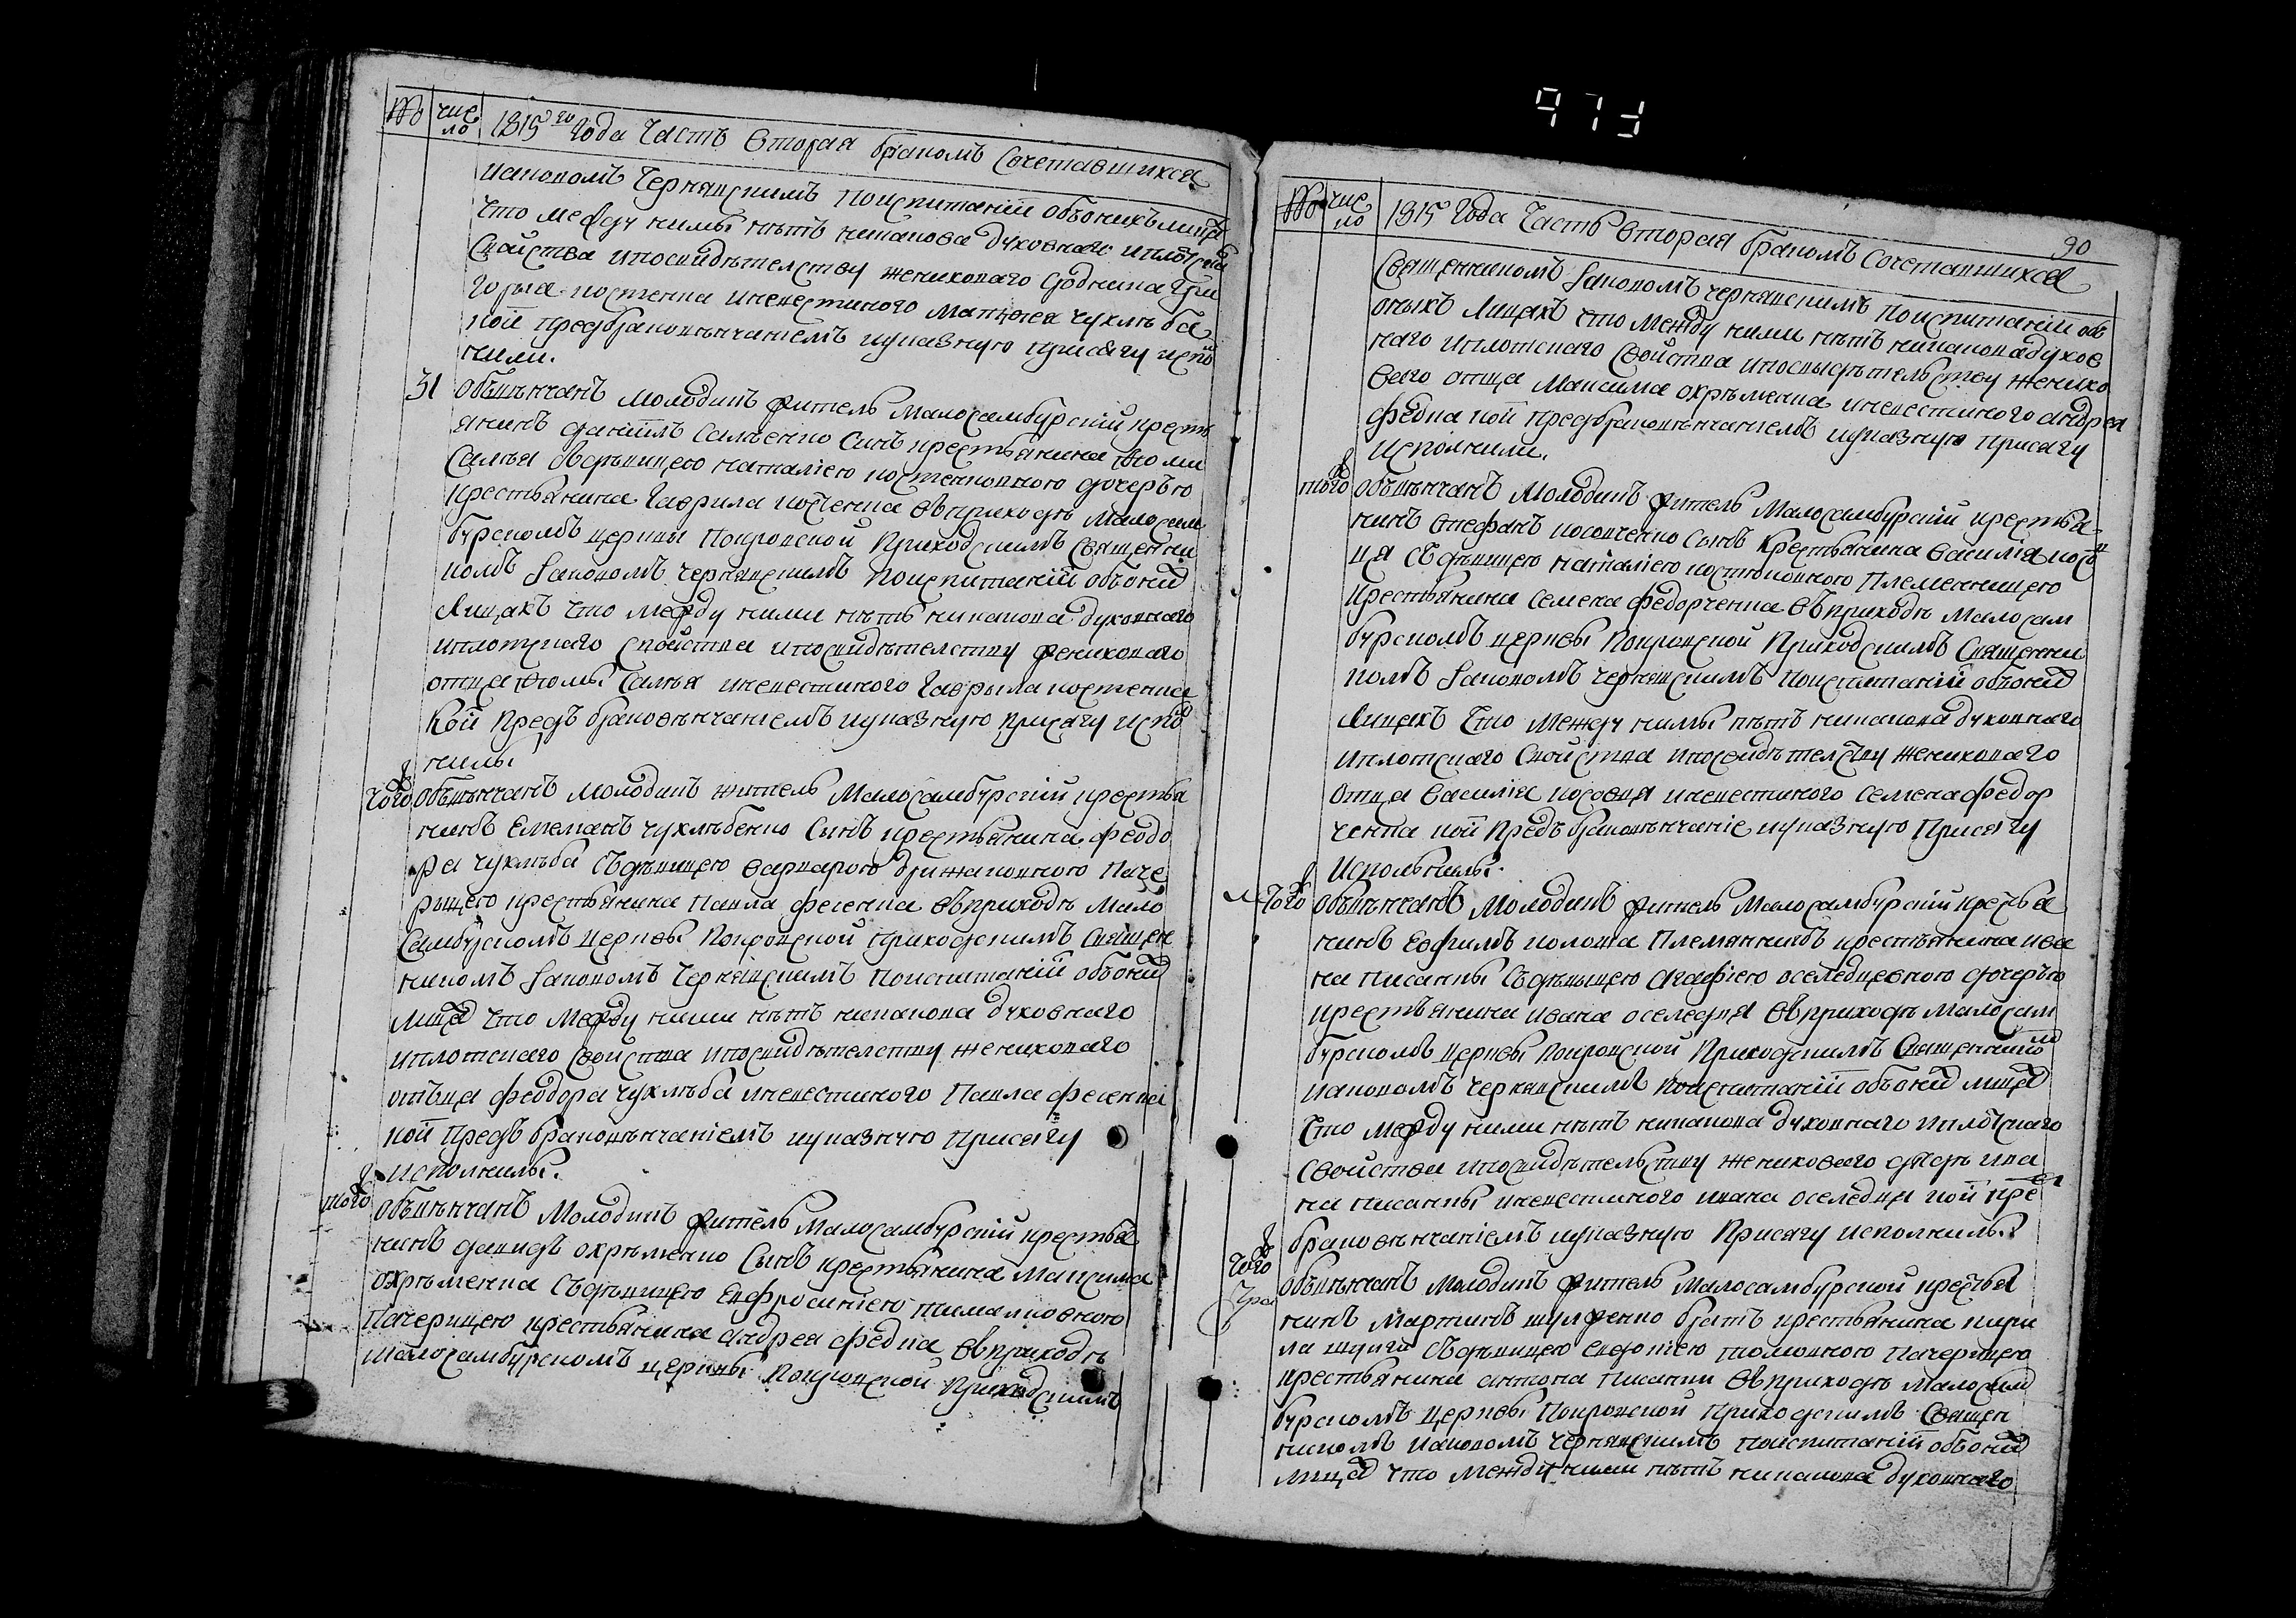 № число 1815го Года Часть Вторая бракомъ Сочетавшихся
Иаковомъ Чернявскимъ Поиспитаніи обонихъ лицахъ
что между нимы нѣтъ никакова духовнаго иплотскаго
Свойства ипосвидѣтелству жениховаго Сродника Гри
горыя костенка иневестиного Матфея чухлѣба
кои предбраковѣнчаніемъ иуказную присягу испол
нили.
31 Обвѣнчанъ Молодикъ житель Малосамбурскій кресть
янинъ даніилъ Самъенко Синъ крестьянина Фоми
Самъя здѣвицею наталіею костенковною дочерью
крестьянина Гаврила костенка въприходѣ Малосам
бурскомъ церкви Покровской Приходскимъ Священни
комъ Іаковомъ Чернявскимъ Поиспитаніи обоних
Лицахъ что между ними нѣтъ никакова духовнаго
иплотскаго свойства ипосвидѣтелству жениховаго
отца Фомы Самъя иневестиного Гаврыла костенка
Кои Предъ браковѣнчаніемъ иуказную присягу испол
нилы
того Обвѣнчанъ молодикъ житель Малосамбурскій крестья
нинъ Емелианъ чухлѣбенко Синъ крестьянина феодо
ра чухлѣба Съдѣвицею варварою држаковною Паче
рыцею крестьянина Павла фесенка въприходѣ Мало
Самбурскомъ Церквы Покровской Приходскимъ Священ
никомъ Іаковомъ Чернявскимъ Поиспитаніи обоних
лицах что Между ними нѣтъ никакова духовнаго
иплотскаго свойства ипосвидѣтелству жениховаго
отъца феодора чухлѣба иневестиного Павла фесенка
кои Предъ браковѣнчаніемъ иуказную Присягу
исполнилы.
того Обвѣнчанъ Молодикъ житель Малосамбурскій крестья
нинъ давидъ охрѣменко Сынъ крестьянина Максима
Охрѣменка Съдѣвицею Евфросиніею
Пачерицею крестьянина андрея федка въприходѣ
Малосамбурскомъ церквы Покровской Приходскимъ
№ число 1815 Года Часть Вторая бракомъ Сочетавшихся 90
Священникомъ Іаковомъ чернявскимъ Поиспитаніи объ
оныхъ Лицахъ что Между ними нѣтъ никакова духов
наго иплотскаго Свойства ипосвыдѣтельству женихо
ваго отца Максима охрѣменка иневестиного андрея
федка кои Предбраковѣнчаніемъ иуказную присягу
Исполнили.
того Обвѣнчанъ Молодикъ житель Малосамбурскій крестья
нинъ Стефанъ косовченко Сынъ Крестьянина василія косов
ця Съдѣвицею наталіею Племенницею
Крестьянина Семена федорченка въприходѣ Малосам
бурскомъ церквы Покровской Приходскимъ Священни
комъ Іаковомъ Чернявскимъ Поиспитаніи обоних
Лицахъ Что Между нимы нѣтъ никакова духовнаго
иплотскаго Свойства ипосвидѣтелству жениховаго
Отца Василія косовця иневестиного Семена федор
ченка кои Предъ браковѣнчаніе иуказную Присягу
Исполънилы.
того Обвѣнчанъ Молодикъ житель Малосамбурскій крестья
нинъ Евфимъ Племянникъ крестьянина Ива
на писанкы Съдѣвыцею агафіею оселедцевною дочерью
крестьянина Ивана оселедця въприходѣ малосам
бурскомъ Церквы Покровской Приходскимъ Священником
Иаковомъ Чернявскимъ Поиспитаніи обоних лицах
Что между ними нѣтъ никакова духовнаго иплотскаго
Свойства ипосвидѣтельству жениховаго дядѣ ива
на писанкы иневестиного ивана оселедця кои пред
браковѣнчаніемъ иуказную Присягу исполнилы
того Обвѣнчанъ Молодикъ житель Малосамбурской крестья
нинъ Мартинъ шулженко братъ крестьянина кири
ла шулги Съдѣвицею Пачерицею
крестьянина антона писанки въприходѣ Малосам
бурскомъ Церквы Покровской Приходскимъ Священ
никомъ Иаковомъ Чернявскимъ Поиспитаніи обоних
лицах что между ними нѣтъ никакова духовнаго